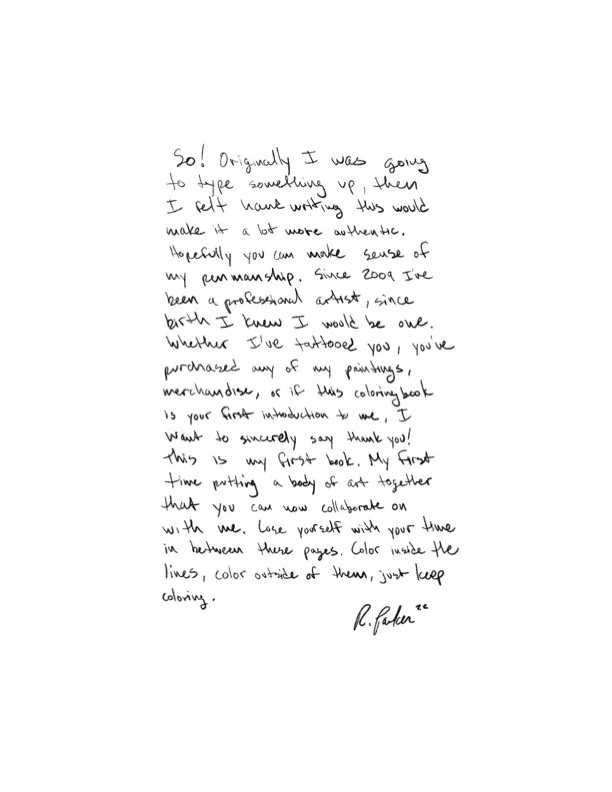 So! Originally I was going
to type something up, then
I felt hand writing this would
make it a lot more authentic.
Hopefully you can make sense of
my penmanship. Since 2009 I've
been a professional artist, since
birth I knew I would be one.
Whether I've tattooed you, you've
purchased any of my paintings,
merchandise, or if this coloring book
is your first introduction to me, I
want to sincerely say thank you!
This is my first book. My first
time putting a body of art together
that you can now collaborate on
with me. Lose yourself with your time
in between these pages. Color inside the
lines, color outside of them, just keep
coloring.
R. Parker '22